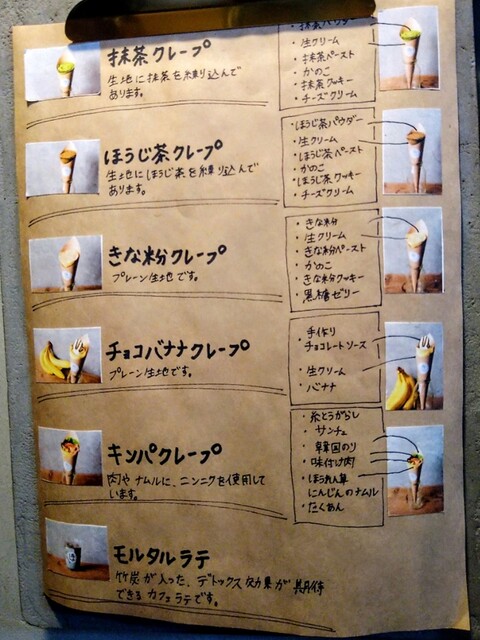 抹茶クレープ
生地に抹茶を練り込んで
あります。
・抹茶パウダー
・生クリーム
・抹茶ペースト
・かのこ
・抹茶クッキー
・チーズクリーム
ほうじ茶クレープ
生地にほうじ茶を練り込んで
あります。
・ほうじ茶パウダー
・生クリーム
・ほうじ茶ペースト
・かのこ
・ほうじ茶クッキー
・チーズクリーム
きな粉クレープ
プレーン生地です。
・きな粉
・生クリーム
・きな粉ペースト
・かのこ
・きな粉クッキー
・黒糖ゼリー
チョコバナナクレープ
プレーン生地です。
・手作り
チョコレートソース
・生クリーム
・バナナ
キンパクレープ
肉やナムルに、ニンニクを使用して
います。
・糸とうがらし
・サンチュ
・韓国のり
・味付け肉
・ほうれん草
にんじんのナムル
・たくあん
モルタルラテ
竹炭が入った、デトックス効果が期待
できるカフェラテです。